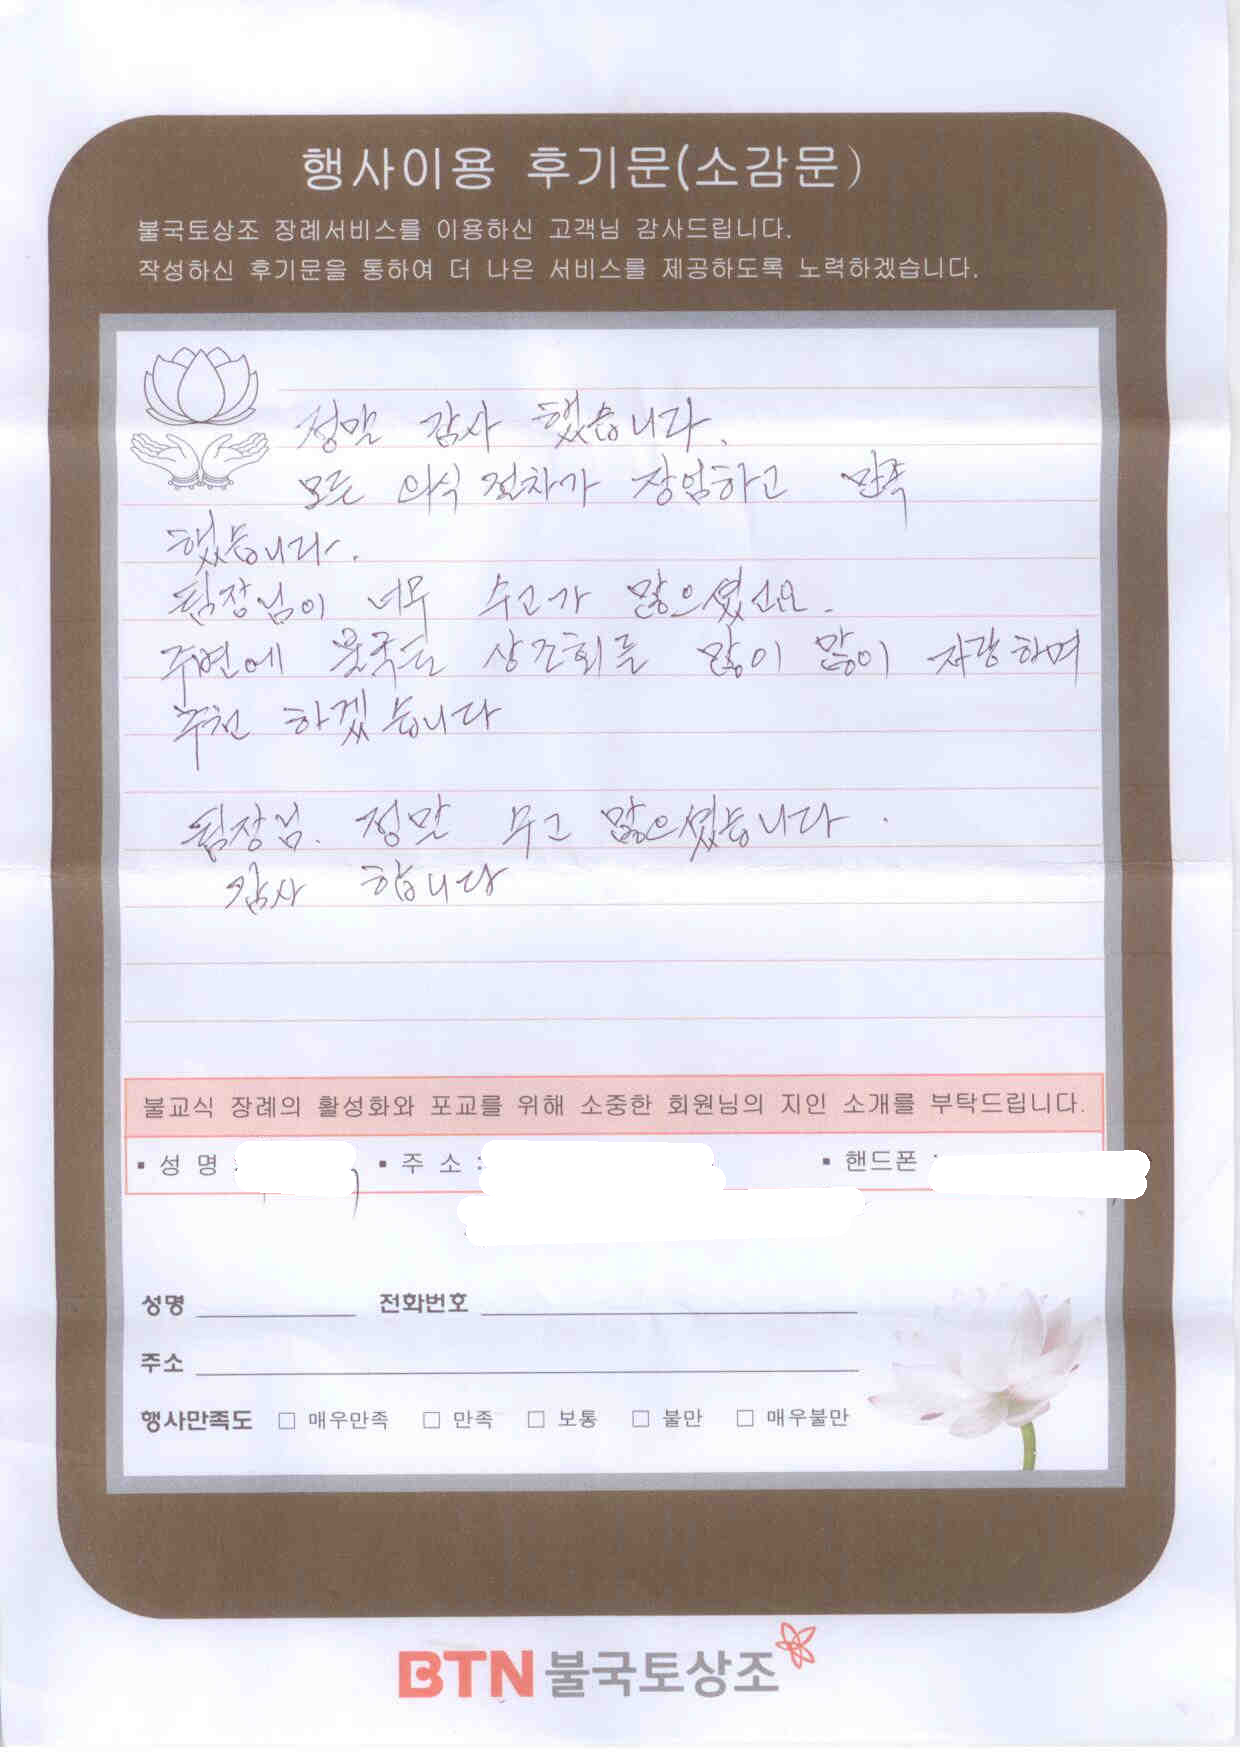 행사이용 후기문(소감문)
불국토상조 장례서비스를 이용하신 고객님 감사드립니다.
작성하신 후기문을 통하여 더 나은 서비스를 제공하도록 노력하겠습니다.
정말 감사 했습니다.
모든 의식 절차가 장엄하고 만족
했습니다.
팀장님이 너무 수고가 많으셨어요.
주변에 불국토 상조회를 많이 많이 자랑하며
추천 하겠습니다
팀장님. 정말 수고 많으셨습니다.
감사 합니다
불교식 장례의 활성화와 포교를 위해 소중한 회원님의 지인 소개를 부탁드립니다.
▪ 성 명 : ▪ 주 소 : ▪ 핸드폰 :
성명 전화번호
주소
행사만족도 □ 매우만족 □ 만족 □ 보통 □ 불만 □ 매우불만
BTN 불국토상조